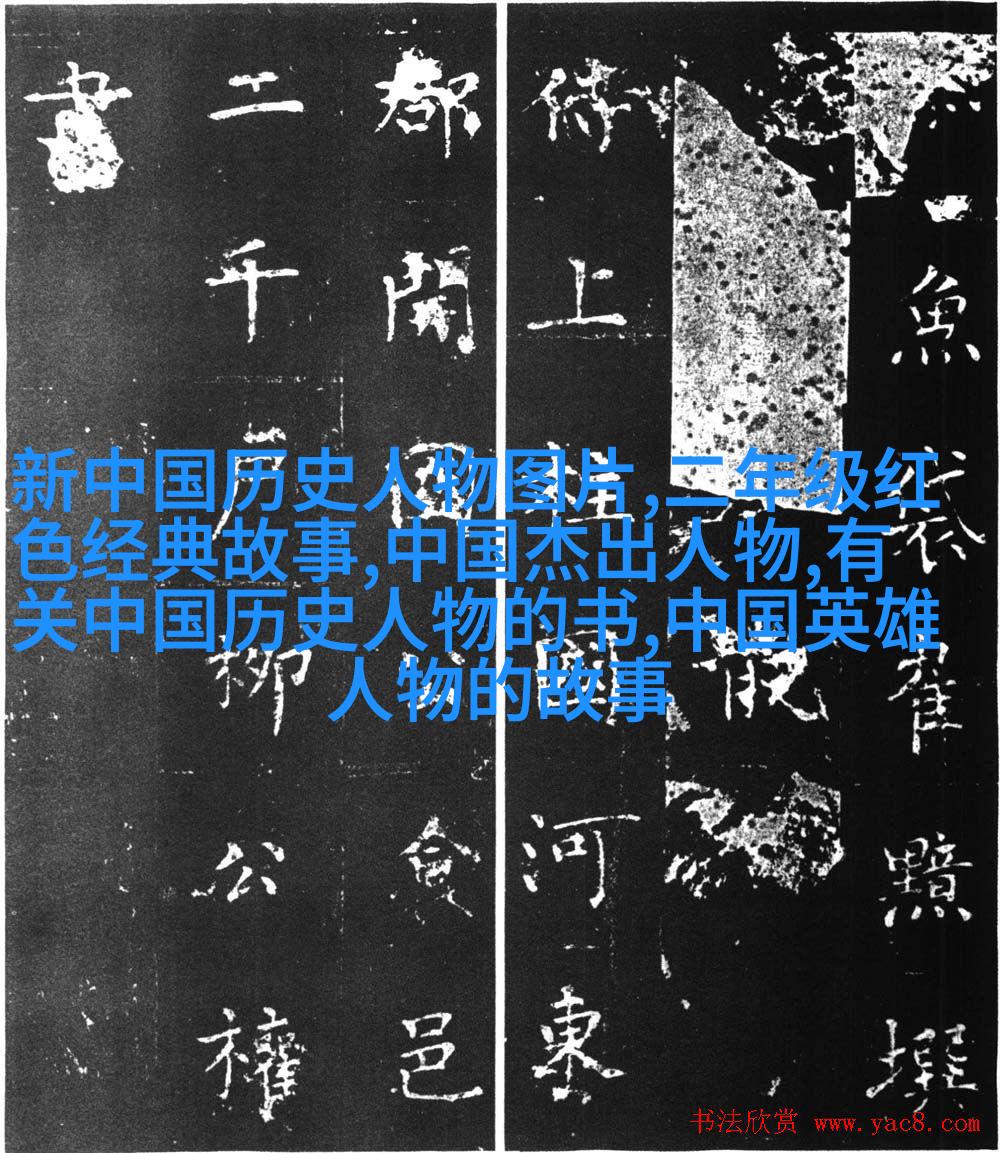 魚袋崔黯撰
侍上柱國河東
郡開國公食邑
二千戶柳公權
書
新中国历史人物图片,二年级红
色经典故事,中国杰出人物,有
关中国历史人物的书,中国英雄
人物的故事
书法欣赏 www.yac8.com